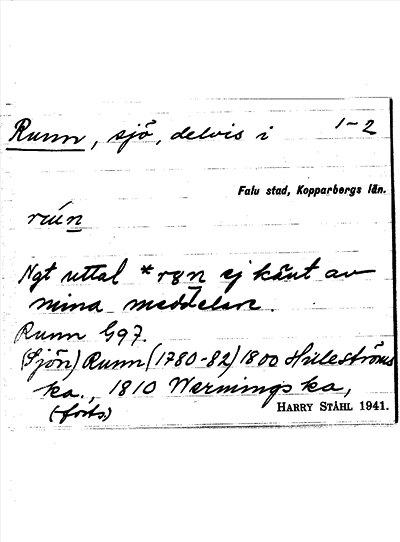 Runn, sjö, delvis i 1-2
Falu stad, Kopparbergs län.
Ngt uttal * ej känt av
mina meddelare.
Runn G97.
(Sjön) Runn (1780-82) 1800 Hülleströms
ka., 1810 Wernings ka,
(forts.)
HARRY STÅHL 1941.